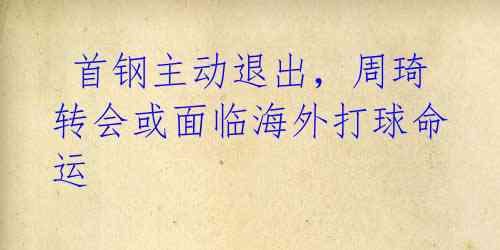 首钢主动退出，周琦
转会或面临海外打球命
运